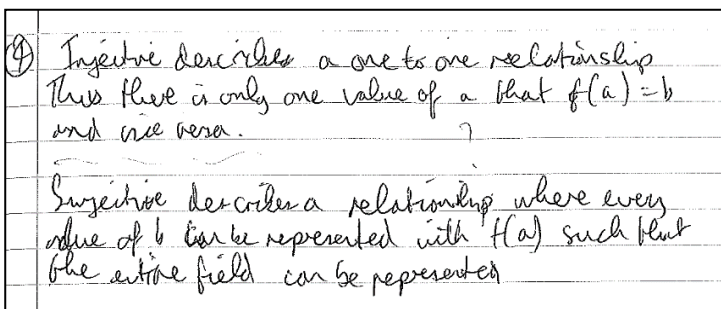 ④ Injective describes a one to one relationship
Thus there is only one value of a that f(a) = b
and vice versa.
?
Surjective describes a relationship where every
value of b can be represented with f(a) such that
the entire field can be represented